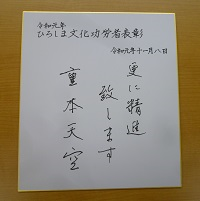 令和元年
ひろしま文化功労者表彰
令和元年十一月八日
更に精進
致します
重本天空